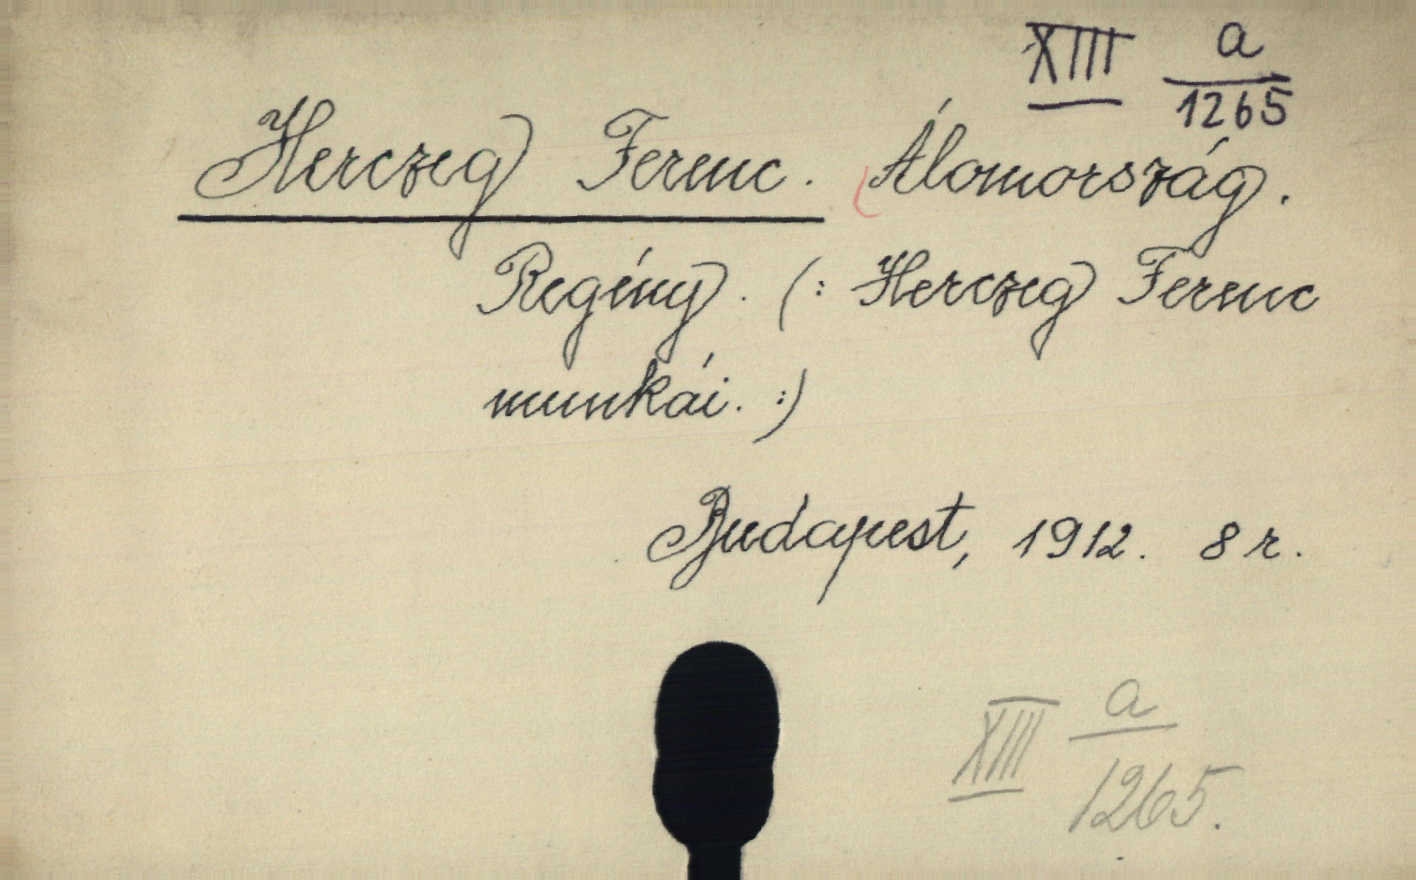 XIII a
1265
Herczeg Ferenc. Álomország.
Regény. (: Herczeg Ferenc
munkái. :)
Budapest, 1912. 8 r.
XIII a
1265.